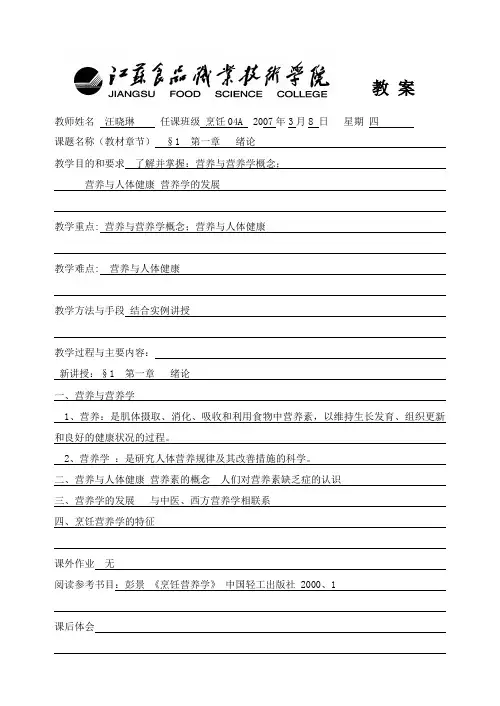 江苏食品職業技術学院
JIANGSU FOOD SCIENCE COLLEGE
教 案
教师姓名 汪晓琳 任课班级 烹饪04A 2007年3月8 日 星期 四
课题名称（教材章节） §1 第一章 绪论
教学目的和要求 了解并掌握：营养与营养学概念；
营养与人体健康 营养学的发展
教学重点: 营养与营养学概念；营养与人体健康
教学难点: 营养与人体健康
教学方法与手段 结合实例讲授
教学过程与主要内容：
新讲授：§1 第一章 绪论
一、营养与营养学
1、营养：是肌体摄取、消化、吸收和利用食物中营养素，以维持生长发育、组织更新
和良好的健康状况的过程。
2、营养学 ：是研究人体营养规律及其改善措施的科学。
二、营养与人体健康 营养素的概念 人们对营养素缺乏症的认识
三、营养学的发展 与中医、西方营养学相联系
四、烹饪营养学的特征
课外作业 无
阅读参考书目：彭景 《烹饪营养学》 中国轻工出版社 2000、1
课后体会